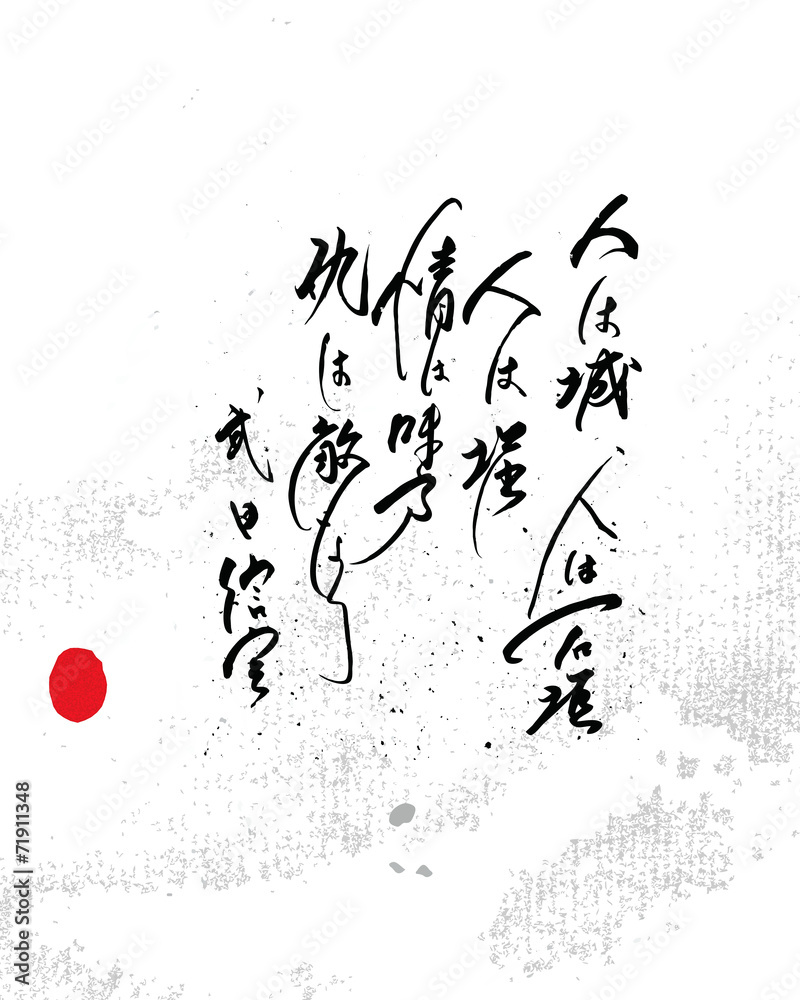 人は城、人は石垣
人は堀
情は味方
仇は敵なり
武田信玄
Adobe Stock | #71911348
Adobe Stock